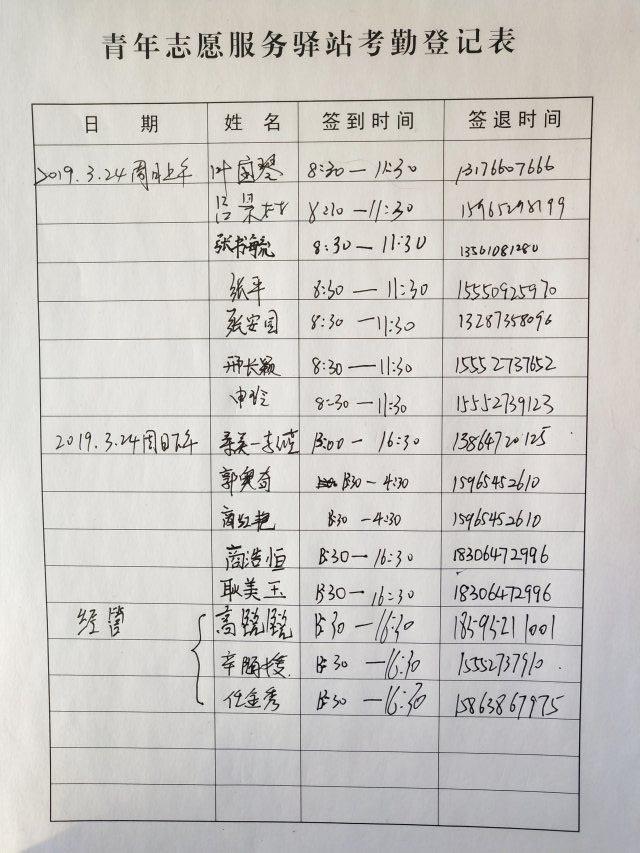 青年志愿服务驿站考勤登记表
日 期 姓 名 签到时间 签退时间
2019.3.24周日上午 叶国琴 8:30—11:30 13176607666
吕梁 8:30—11:30 15965298199
张书毓 8:30—11:30 13561081280
张平 8:30—11:30 15550925970
张安国 8:30—11:30 13287358096
邢长颖 8:30—11:30 15552737652
申玲 8:30—11:30 15552739123
2019.3.24周日下午 13:00—16:30 13864720125
郭奥奇 13:30—4:30 15965452610
商红艳 13:30—4:30 15965452610
商浩恒 13:30—16:30 18306472996
耿美玉 13:30—16:30 18306472996
经管 高 13:30—16:30 18595211001
辛 13:30—16:30 15552737910
任金秀 13:30—16:30 15863867975